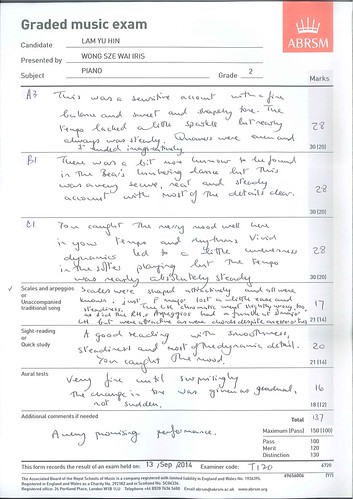 Graded music exam
ABRSM
Candidate LAM YU HIN
Presented by WONG SZE WAI IRIS
Subject PIANO Grade 2
Marks
A3 This was a sensitive account with a fine
balance and sweet and shapely tone. The
tempo lacked a little sparkle but nearly
always was steady. Quavers were even and
ended imaginatively.
28
30 (20)
B1 There was a bit more humour to be found
in the Bear's lumbering dance but this
was a very secure, neat and steady
account with most of the details clear.
28
30 (20)
C1 You caught the merry mood well here
in your tempo and rhythms. Vivid
dynamics led to a little unevenness
in the playing but the tempo
was nearly absolutely steady.
28
30 (20)
Scales and arpeggios
or
Unaccompanied
traditional song
Scales were shaped attractively and all were
known; just F major lost a little ease and
steadiness. The chromatic went slightly wrong too
as did the RH. Arpeggios had a fumble at D minor
LH but were attractive as were chords despite
17
21 (14)
Sight-reading
or
Quick study
A good reading with smoothness,
steadiness and most of the dynamic detail.
You caught the mood.
20
21 (14)
Aural tests
Very fine until surprisingly
the change in one was given as gradual,
not sudden.
16
18 (12)
Additional comments if needed
A very promising performance.
Total 137
Maximum (Pass) 150 (100)
Pass 100
Merit 120
Distinction 130
This form records the result of an exam held on 13/Sep/2014 Examiner code: T120 6720
The Associated Board of the Royal Schools of Music